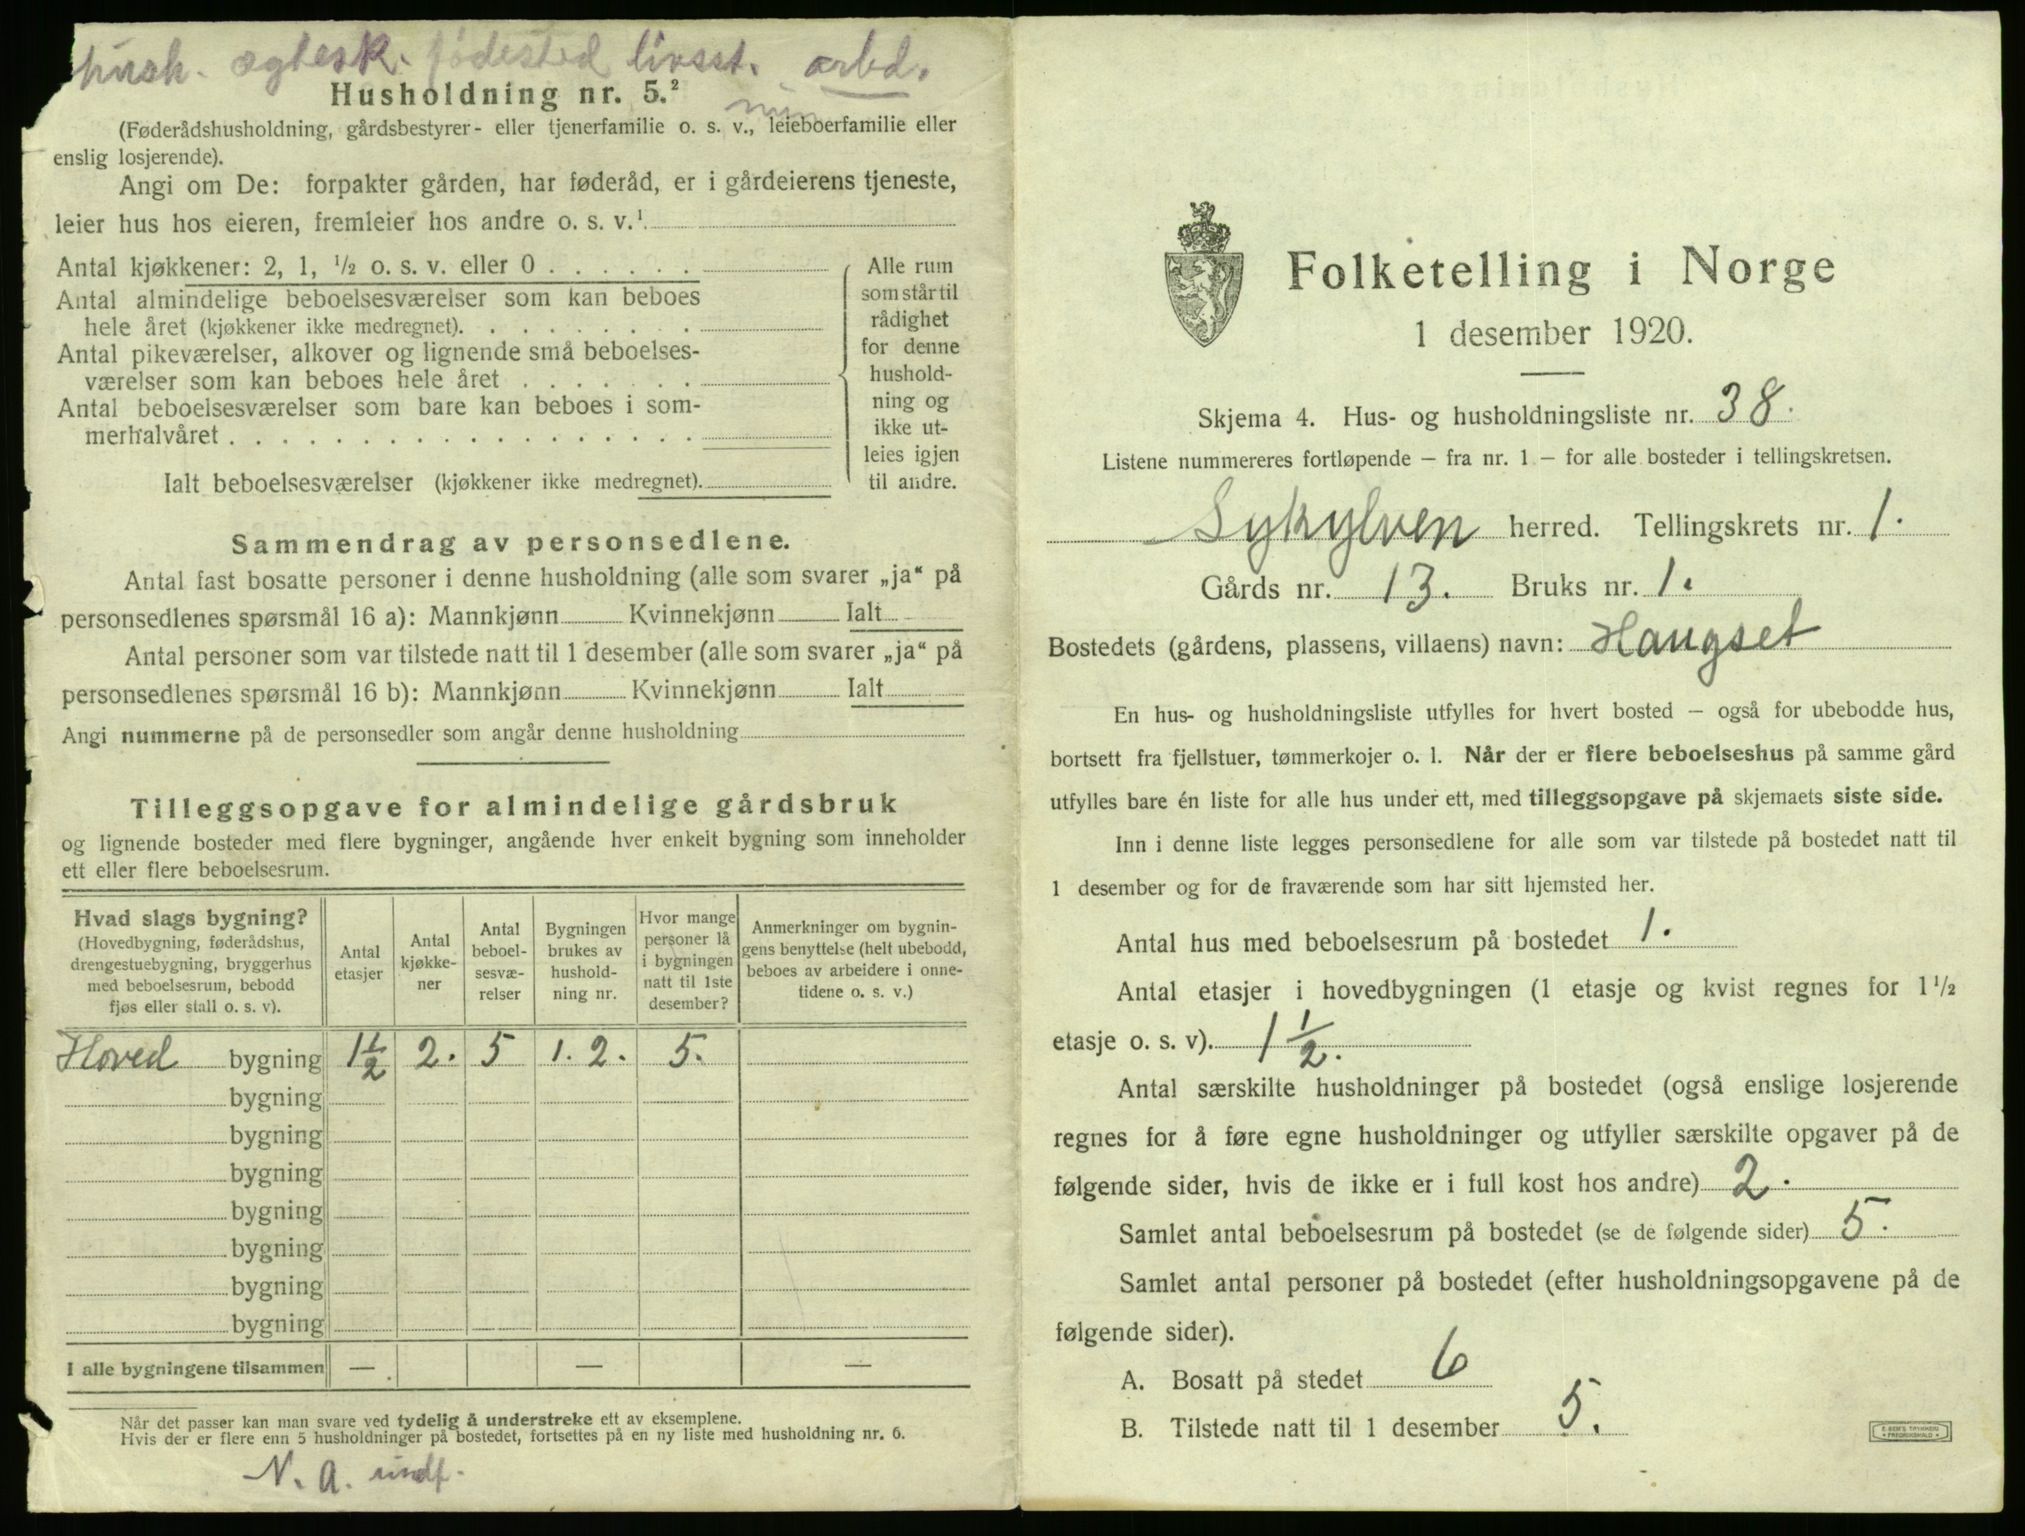 hush. egtesk. fødested livsst. arbd.
Husholdning nr. 5.²
(Føderådshusholdning, gårdsbestyrer- eller tjenerfamilie o. s. v., leieboerfamilie eller
enslig losjerende).
Angi om De: forpakter gården, har føderåd, er i gårdeierens tjeneste,
leier hus hos eieren, fremleier hos andre o. s. v.¹
Antal kjøkkener: 2, 1, ½ o. s. v. eller 0
Antal almindelige beboelsesværelser som kan beboes
hele året (kjøkkener ikke medregnet).
Antal pikeværelser, alkover og lignende små beboelses-
værelser som kan beboes hele året
Antal beboelsesværelser som bare kan beboes i som-
merhalvåret
Ialt beboelsesværelser (kjøkkener ikke medregnet).
Alle rum
som står til
rådighet
for denne
hushold-
ning og
ikke ut-
leies igjen
til andre.
Sammendrag av personsedlene.
Antal fast bosatte personer i denne husholdning (alle som svarer „ja“ på
personsedlenes spørsmål 16 a): Mannkjønn Kvinnekjønn Ialt
Antal personer som var tilstede natt til 1 desember (alle som svarer „ja“ på
personsedlenes spørsmål 16 b): Mannkjønn Kvinnekjønn Ialt
Angi nummerne på de personsedler som angår denne husholdning
Tilleggsopgave for almindelige gårdsbruk
og lignende bosteder med flere bygninger, angående hver enkelt bygning som inneholder
ett eller flere beboelsesrum.
Hvad slags bygning?
(Hovedbygning, føderådshus,
drengestuebygning, bryggerhus
med beboelsesrum, bebodd
fjøs eller stall o. s. v).
Antal
etasjer
Antal
kjøkke-
ner
Antal
beboel-
sesvæ-
relser
Bygningen
brukes av
hushold-
ning nr.
Hvor mange
personer lå
i bygningen
natt til 1ste
desember?
Anmerkninger om bygnin-
gens benyttelse (helt ubebodd,
beboes av arbeidere i onne-
tidene o. s. v.)
Hoved bygning 1½ 2. 5 1. 2. 5.
bygning
bygning
bygning
bygning
bygning
bygning
bygning
I alle bygningene tilsammen — — —
Når det passer kan man svare ved tydelig å understreke ett av eksemplene.
Hvis der er flere enn 5 husholdninger på bostedet, fortsettes på en ny liste med husholdning nr. 6.
N. a. undf.
Folketelling i Norge
1 desember 1920.
Skjema 4. Hus- og husholdningsliste nr. 38.
Listene nummereres fortløpende – fra nr. 1 – for alle bosteder i tellingskretsen.
Sykylven herred. Tellingskrets nr. 1.
Gårds nr. 13. Bruks nr. 1.
Bostedets (gårdens, plassens, villaens) navn: Haugset
En hus- og husholdningsliste utfylles for hvert bosted – også for ubebodde hus,
bortsett fra fjellstuer, tømmerkojer o. l. Når der er flere beboelseshus på samme gård
utfylles bare én liste for alle hus under ett, med tilleggsopgave på skjemaets siste side.
Inn i denne liste legges personsedlene for alle som var tilstede på bostedet natt til
1 desember og for de fraværende som har sitt hjemsted her.
Antal hus med beboelsesrum på bostedet 1.
Antal etasjer i hovedbygningen (1 etasje og kvist regnes for 1½
etasje o. s. v). 1½.
Antal særskilte husholdninger på bostedet (også enslige losjerende
regnes for å føre egne husholdninger og utfyller særskilte opgaver på de
følgende sider, hvis de ikke er i full kost hos andre) 2.
Samlet antal beboelsesrum på bostedet (se de følgende sider) 5.
Samlet antal personer på bostedet (efter husholdningsopgavene på de
følgende sider).
A. Bosatt på stedet 6
B. Tilstede natt til 1 desember 5.